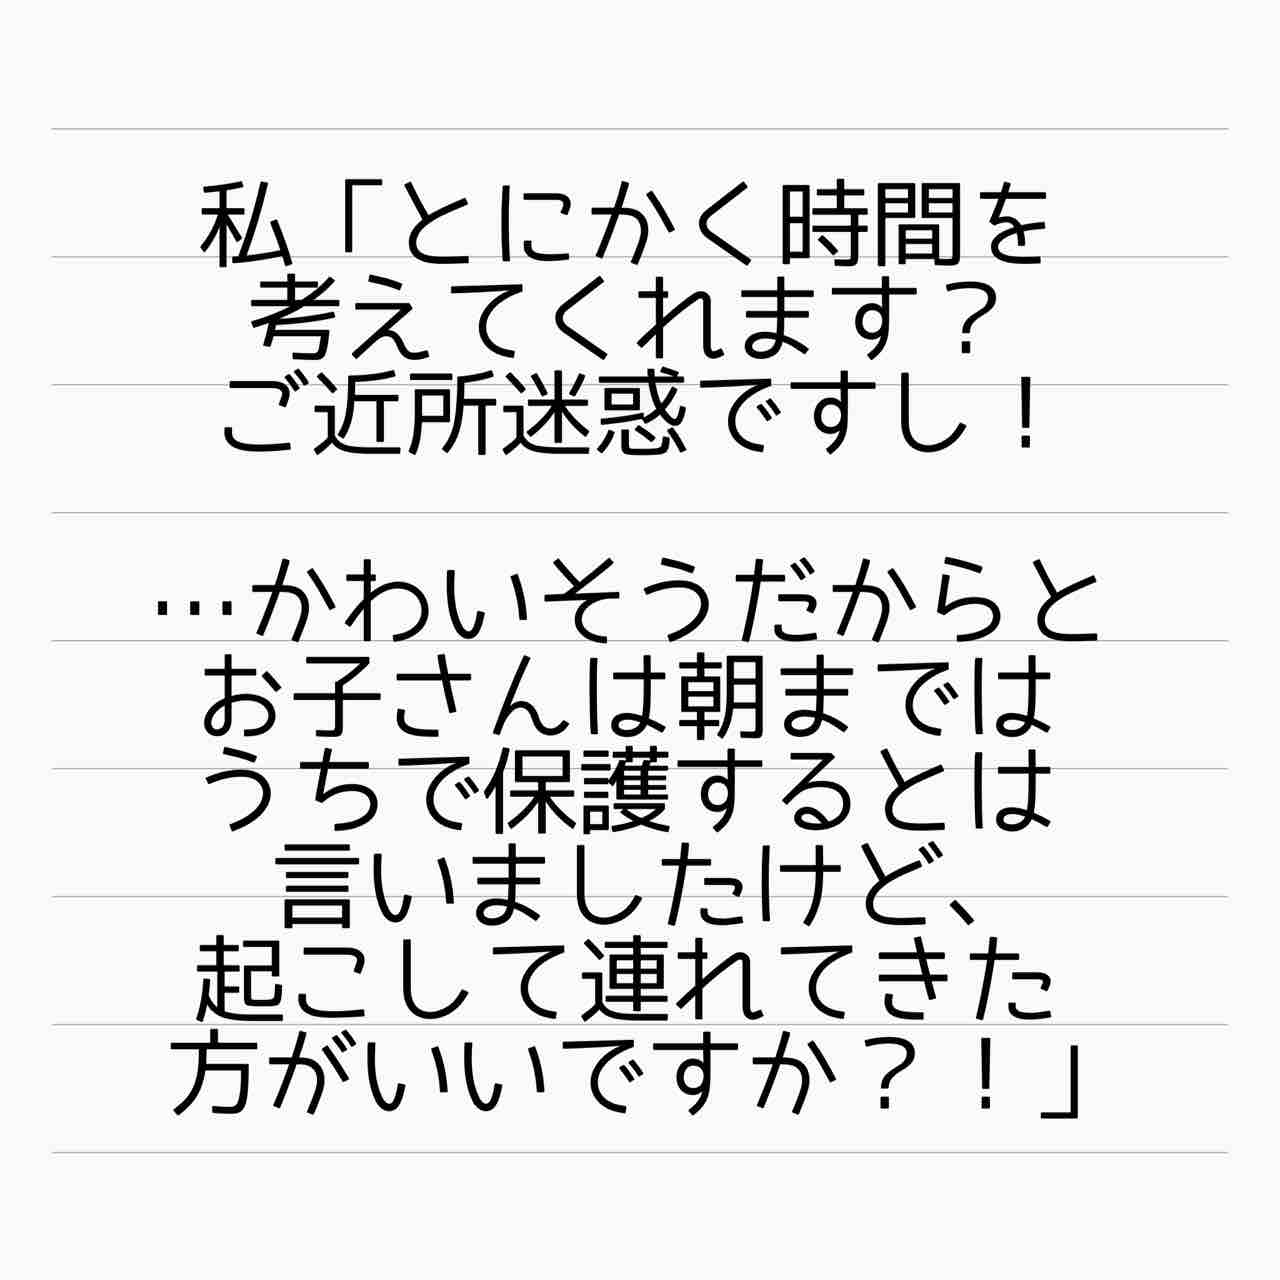 私「とにかく時間を
考えてくれます？
ご近所迷惑ですし！
…かわいそうだからと
お子さんは朝までは
うちで保護するとは
言いましたけど、
起こして連れてきた
方がいいですか？！」